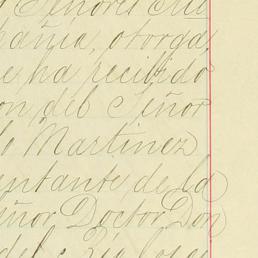 Señores
pañia, otorga,
e ha recibido
on del Señor
lo Martinez
entante, de la
eñor Doctor Don
del